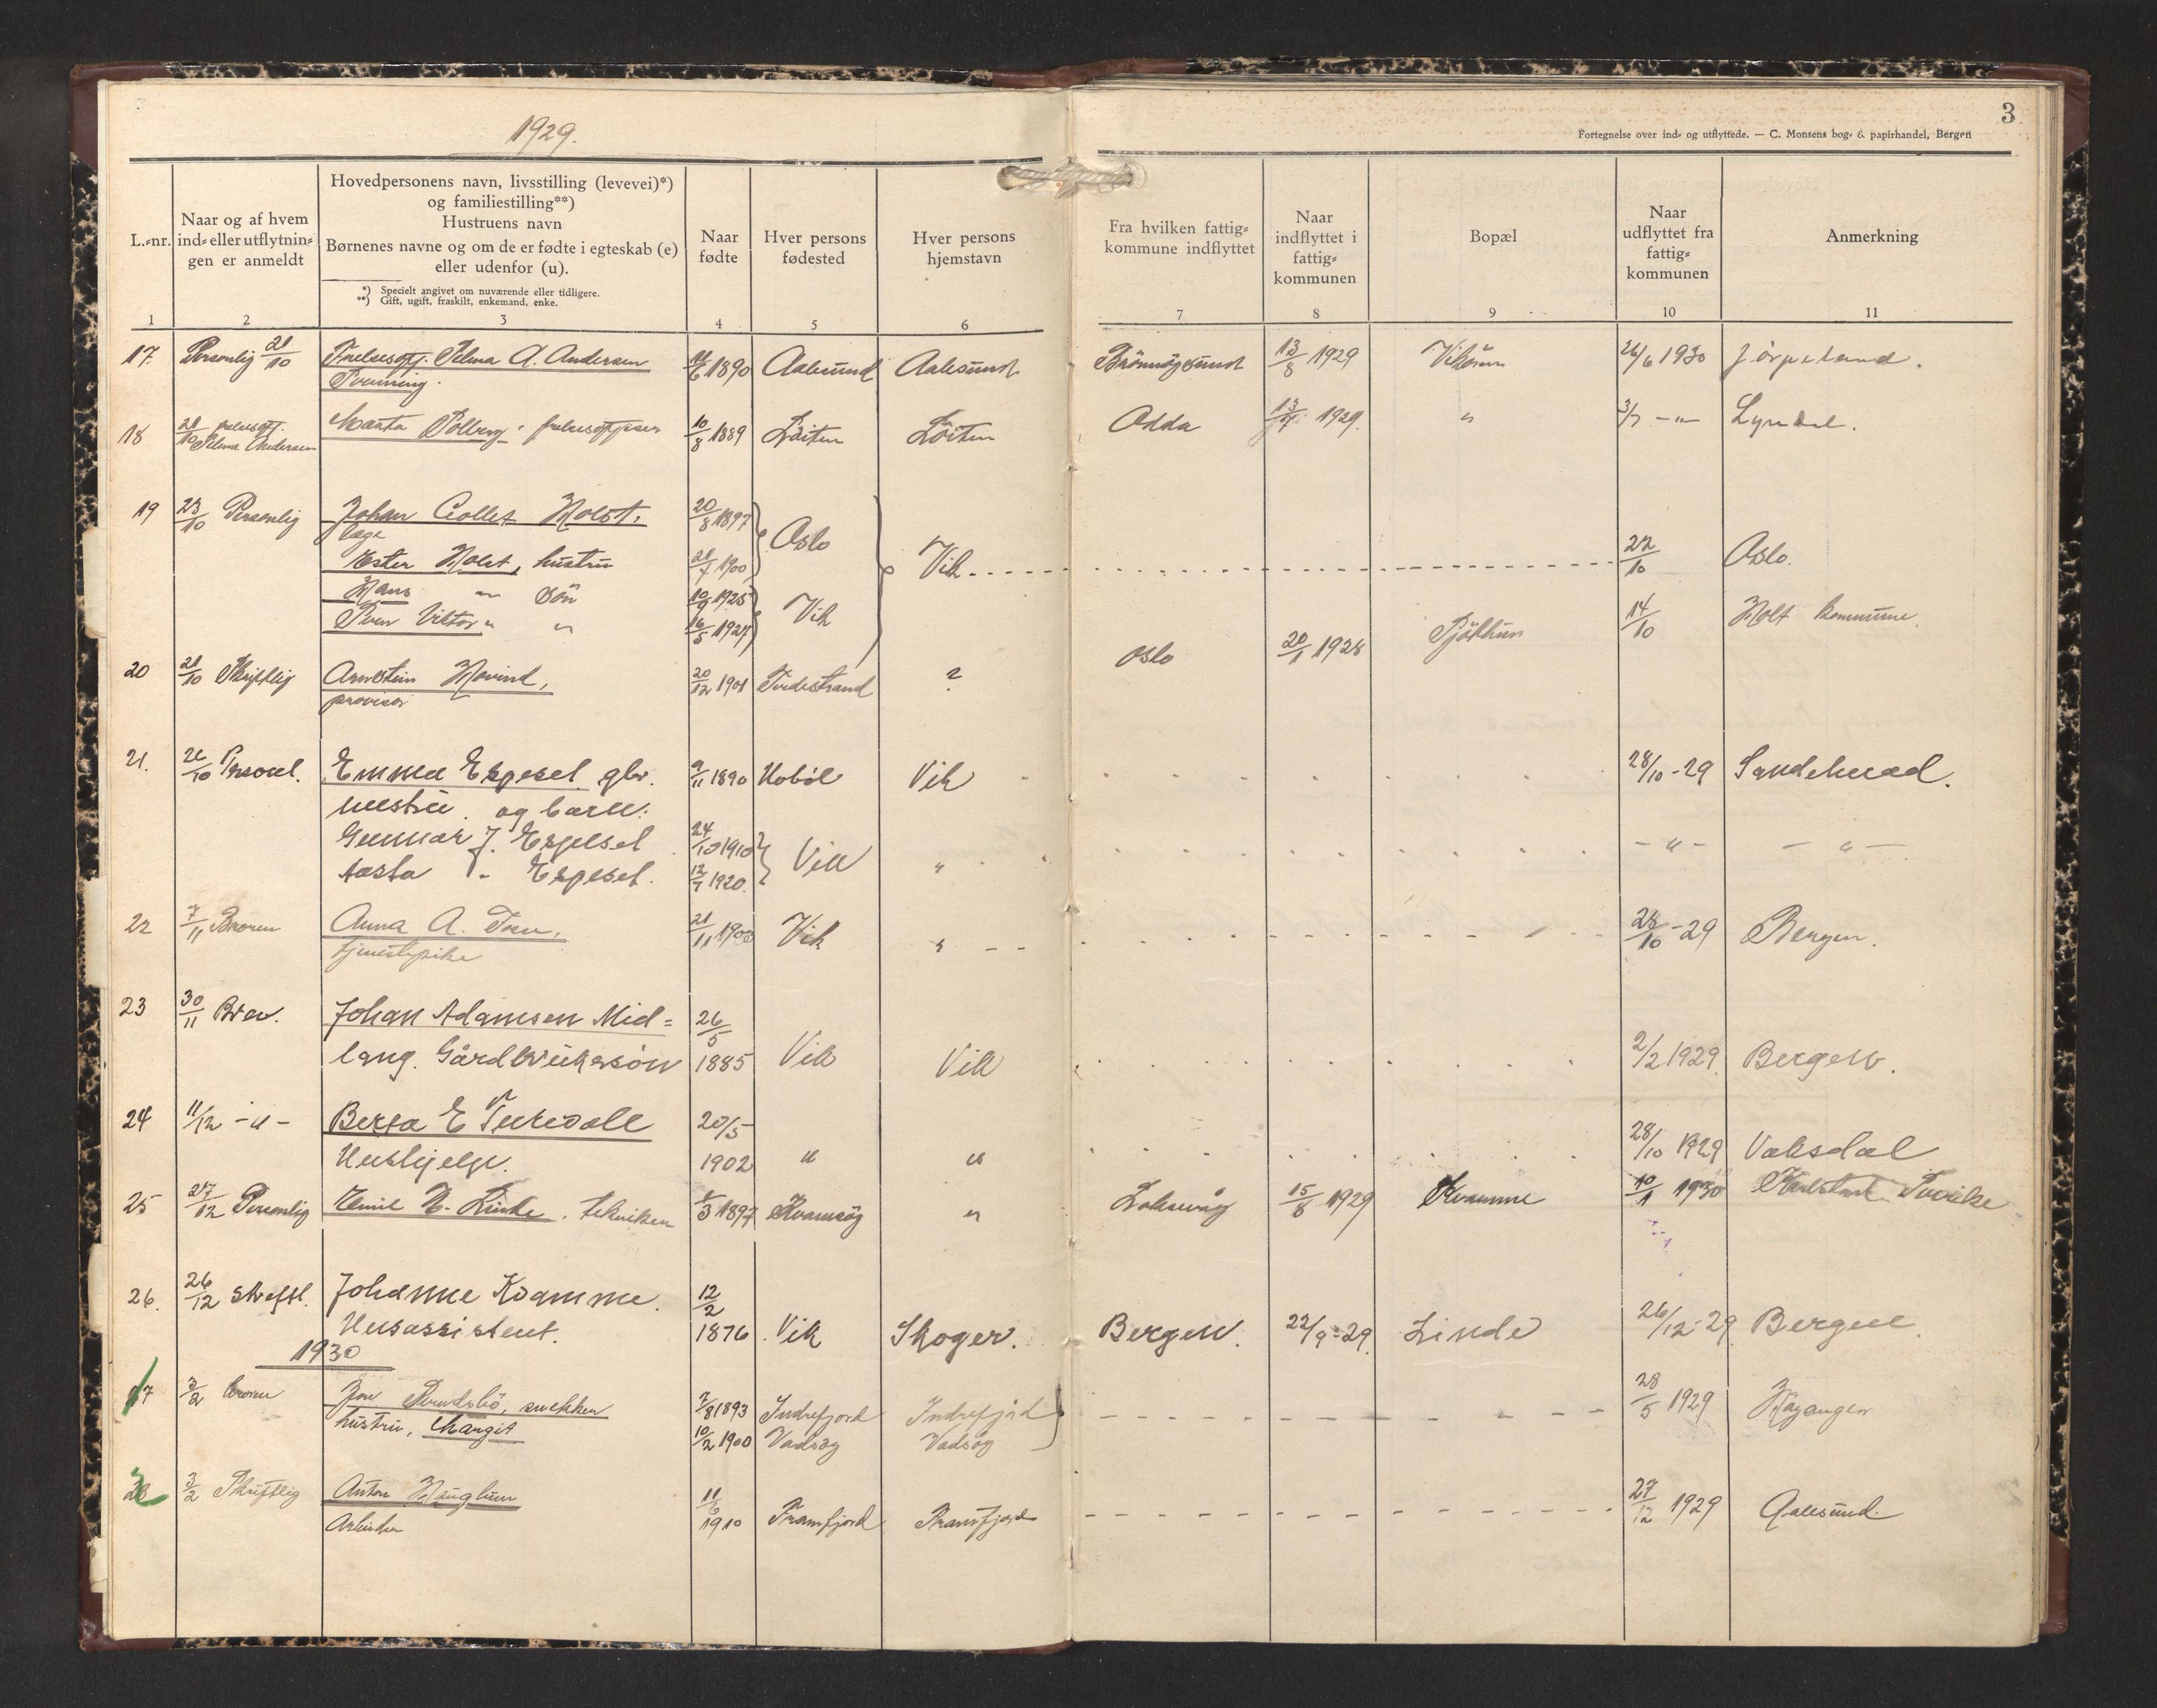 3
1929.
Fortegnelse over ind- og utflyttede. — C. Monsens bog- & papirhandel, Bergen
L.-nr.
Naar og af hvem ind- eller utflytnin-gen er anmeldt
Hovedpersonens navn, livsstilling (levevei)*)
og familiestilling**)
Hustruens navn
Børnenes navne og om de er fødte i egteskab (e)
eller udenfor (u).
*) Specielt angivet om nuværende eller tidligere.
**) Gift, ugift, fraskilt, enkemand, enke.
Naar fødte
Hver persons fødested
Hver persons hjemstavn
Fra hvilken fattig-kommune indflyttet
Naar indflyttet i fattig-kommunen
Bopæl
Naar udflyttet fra fattig-kommunen
Anmerkning
1 2 3 4 5 6 7 8 9 10 11
17. Personlig 21/10 Selma A. Andersen 1890 Aalesund Aalesund Brönnöysund 13/8 1929 Vikören 26/6 1930 Jörpeland.
18 21/10 frelsesoff. Marta Solberg frelsesoffiser 10/8 1889 Löiten Löiten Odda 1929. " 3/7 -"- Lyngdal.
Selma Andersen
19 23/10 Personlig Johan Collet Holst. 20/8 1897 Oslo Vik 22/10 Oslo.
læge
Ester Holst, hustru 1900
Hans -"- Sön 1925 Vik
Sven Viktor " " 16/5 1927
20 21/10 Skriftlig Arnstein Hovind, 20/12 1901 Tvedestrand ? Oslo 20/1 1928 Sjökhun 14/10 Holt kommune.
provisor
21. 26/10 Personl. Emma Espesel gbr. 9/11 1890 Hoböl Vik 28/10-29 Sandeherad.
hustru. og barn:
Gunnar J. Espesel 24/10 1910 Vik " -"- -"-
Aasta " Espesel. 1920.
22 7/11 Broren Anna A. Tren, 21/11 1903 Vik " 28/10-29 Bergen.
tjenestepike
23 30/11 Brev. Johan Adamsen Mid=
lang. Gårdbrukersön 26/5 1885 Vik Vik 2/2 1929. Bergen.
24 11/12 -"- Berta E Turvoll 20/5 1902 " " 28/10 1929 Vaksdal
Hushjelp.
25 27/12 Personlig Emil H. Linde. tekniker 3 1897 Kvamsöy " Laksevåg 15/8 1929 Kvamme 10/1 1930
26. 26/12 Skriftl. Johanne Kvamme. 12/2 1876 Vik Skoger. Bergen. 22/9-29. Linde 26/12-29 Bergen.
Husassistent.
1930
27 3/2 broren Jon Sundsbö, snekker 7/8 1893 Indrefjord Indrefjord 28/5 1929 Höyanger
hustru, Margit 10/2 1900 Vadsöy Vadsöy
28 3/2 Skriftlig Anton Hauglum 1910 Framfjord Framfjord 27/12 1929 Aalesund.
Arbeider